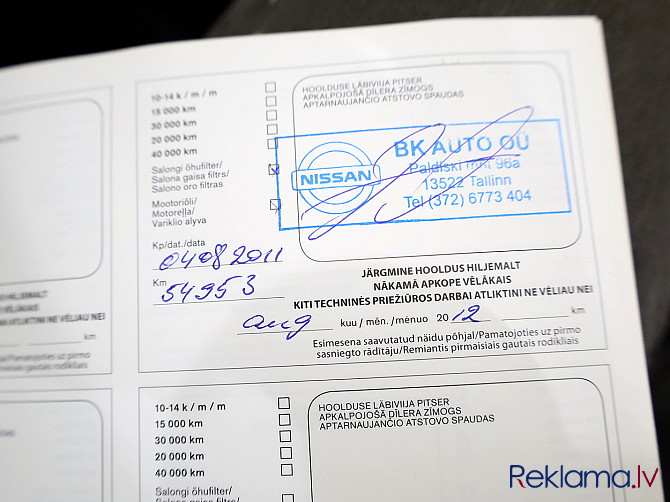 10-14 k / m / m
15 000 km
30 000 km
20 000 km
40 000 km
Salongi õhufilter/
Salona gaisa filtrs/
Salono oro filtras
Mootoriõli/
Motoreļļa/
Variklio alyva
Kp/dat./data
04 08 2011
Km
54953
HOOLDUSE LÄBIVIIJA PITSER
APKALPOJOŠĀ DĪLERA ZĪMOGS
APTARNAUJANČIO ATSTOVO SPAUDAS
NISSAN
BK AUTO OÜ
Paldiski mnt 96a
13522 Tallinn
Tel (372) 6773 404
JÄRGMINE HOOLDUS HILJEMALT
NĀKAMĀ APKOPE VĒLĀKAIS
KITI TECHNINĖS PRIEŽIŪROS DARBAI ATLIKTINI NE VĖLIAU NEI
aug kuu / mēn. / mėnuo 20 12 km
Esimesena saavutatud näidu põhjal/Pamatojoties uz pirmo
sasniegto rādītāju/Remiantis pirmaisiais gautais rodikliais
10-14 k / m / m
15 000 km
30 000 km
20 000 km
40 000 km
Salongi õhufilter/
Salona gaisa filtrs/
HOOLDUSE LÄBIVIIJA PITSER
APKALPOJOŠĀ DĪLERA ZĪMOGS
APTARNAUJANČIO ATSTOVO SPAUDAS
HILJEMALT
VĒLĀKAIS
ATLIKTINI NE VĖLIAU NEI
km
/Pamatojoties uz pirmo
gautais rodikliais
Reklama.lv